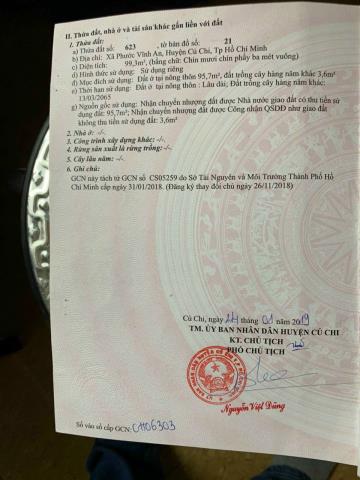 II. Thửa đất, nhà ở và tài sản khác gắn liền với đất
1. Thửa đất:
a) Thửa đất số: 623 , tờ bản đồ số: 21
b) Địa chỉ: Xã Phước Vĩnh An, Huyện Củ Chi, Tp Hồ Chí Minh
c) Diện tích: 99,3m², (bằng chữ: Chín mươi chín phẩy ba mét vuông)
d) Hình thức sử dụng: Sử dụng riêng
đ) Mục đích sử dụng: Đất ở tại nông thôn 95,7m², đất trồng cây hàng năm khác 3,6m²
e) Thời hạn sử dụng: Đất ở tại nông thôn : Lâu dài; Đất trồng cây hàng năm khác:
13/03/2065
g) Nguồn gốc sử dụng: Nhận chuyển nhượng đất được Nhà nước giao đất có thu tiền sử
dụng đất: 95,7m²; Nhận chuyển nhượng đất được Công nhận QSDĐ như giao đất
không thu tiền sử dụng đất: 3,6m²
2. Nhà ở: -/-.
3. Công trình xây dựng khác: -/-.
4. Rừng sản xuất là rừng trồng: -/-.
5. Cây lâu năm: -/-.
6. Ghi chú:
GCN này tách từ GCN số CS05259 do Sở Tài Nguyên và Môi Trường Thành Phố Hồ
Chí Minh cấp ngày 31/01/2018. (Đăng ký thay đổi chủ ngày 26/11/2018)
Củ Chi, ngày 24 tháng 01 năm 2019
TM. ỦY BAN NHÂN DÂN HUYỆN CỦ CHI
KT. CHỦ TỊCH
PHÓ CHỦ TỊCH
Nguyễn Việt Dũng
Số vào sổ cấp GCN: CH06303